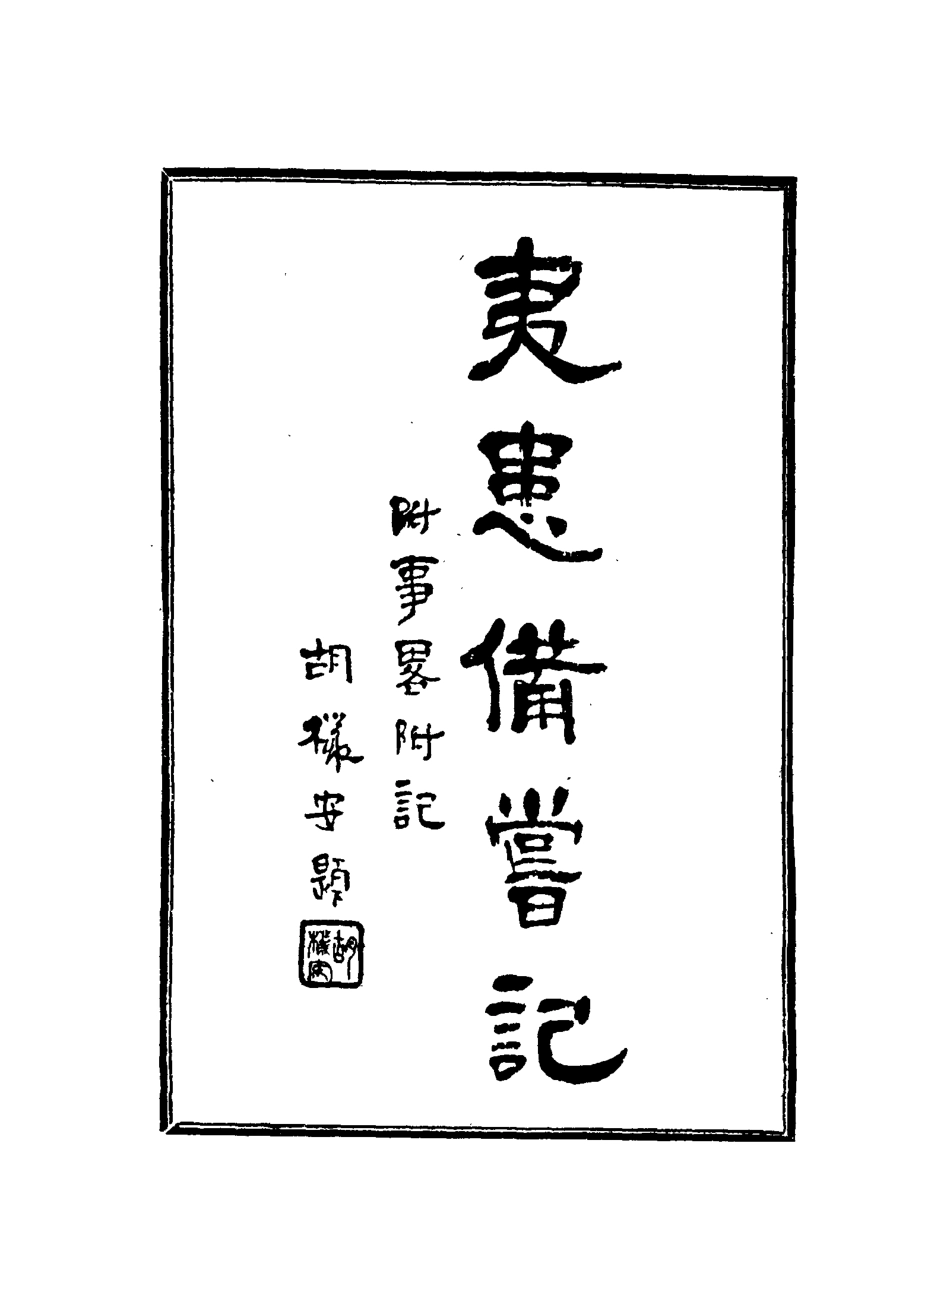 夷患備嘗記
附事畧附記
胡樸安題
胡樸安